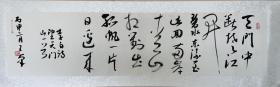 天門中
断楚江
开
碧水东流至
此回两岸
青山
相对出
孤帆一片
日邊来
李白诗
望天门
山一首
丙申